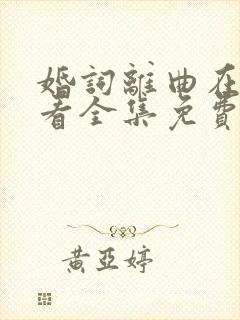 婚詞離曲在
看全集免費
黃亞婷